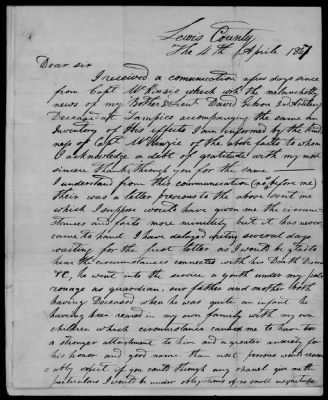 Lewis County
The 4th April 1847
Dear sir
I received a comunication a few days since
from Capt McKinzie which with the melancholly
news of my Brother Lieut David Gibson 2nd Artillery
Deceased at Tampico accompanying the same an
Inventory of his effects I am informed by the kind
ness of Capt McKinzie of the above facts to whom
I acknowledge a debt of gratitude with my most
sincere thanks through you for the same
I understand from this communication (as before me)
their was a letter previous to the above sent me
which I suppose would have given me the circum
stances and facts more minutely but it has never
came to hand I have delayed writing several days
waiting for the first letter as I would be glad to
hear the circumstances connected with his Death Disease
&C, he went into the service a youth under my pat
ronage as guardian, our father and mother both
having Deceased when he was quite an infant he
having been reared in my own family with my own
children which circumstance caused me to have
a stronger attachment to him and a greater anxiety for
his honor and good name than most persons would reason
ably expect if you could through any chanel give me the
particulars I would be under obligations of no small magnitude